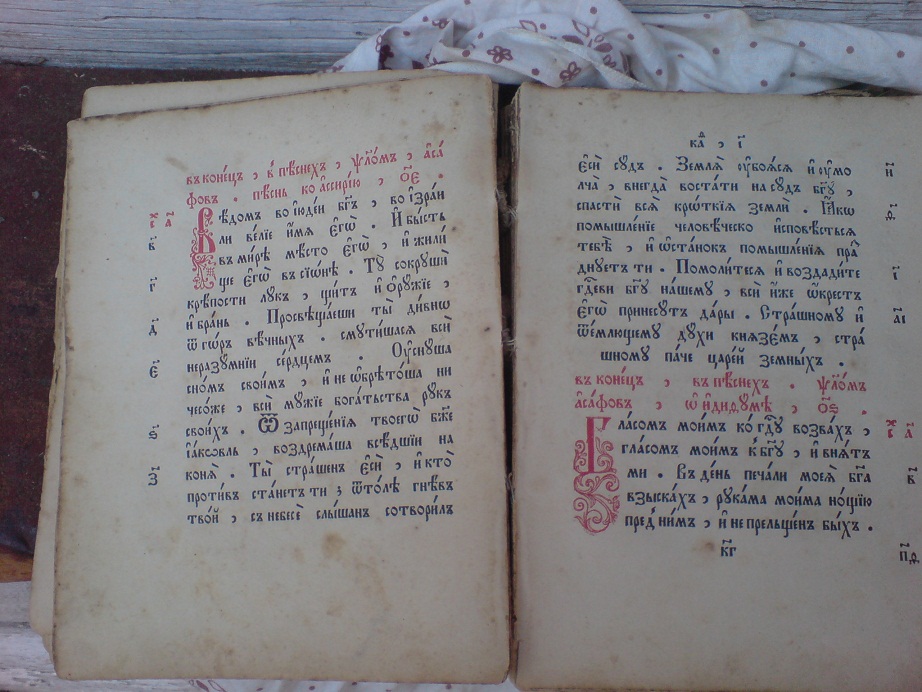 въ коне́цъ , в̾ пѣ́снехъ , ѱало́мъ , а҆са́
фовъ . пѣ́снь ко а҆ссирі́ю , о҃е .
х҃с а҃
Вѣ́домъ во і҆юде́и бг҃ъ , во і҆зра́и
ли ве́лїе и҆́мя є҆гѡ̀ . И҆ бы́сть
в҃
въ ми́рѣ мѣ́сто є҆гѡ̀ , и҆ жили́
ще є҆гѡ̀ въ сїѡ́нѣ . Тꙋ̀ сокрꙋшѝ
г҃
крѣ́пости лꙋ́къ , щи́тъ и҆ ѻ҆рꙋ́жїе ,
и҆ бра́нь . Просвѣща́еши ты̀ ди́внѡ
д҃
ѿ го́ръ вѣ́чныхъ . смꙋти́шася всѝ
неразꙋ́мнїи се́рдцемъ . Оу҆снꙋ́ша
є҃
сно́мъ свои́мъ , и҆ не ѡ҆брѣто́ша ни
чесо́же , всѝ мꙋ́жїе бога́тьства рꙋ́къ
свои́хъ . Ѿ запреще́нїя твоегѡ̀ бж҃е
ѕ҃
і҆а́ковль , воздрема́ша всѣ́дшїи на
коня̀ . Ты̀ стра́шенъ є҆сѝ , и҆ кто̀
з҃
проти́въ ста́нетъ ти ; ѿто́лѣ гнѣ́въ
тво́й , съ небесѐ слы́шанъ сотвори́лъ
ка҃ , і҃
є҆сѝ сꙋ́дъ . Земля̀ оу҆боя́ся и҆ оу҆мо
и҃
лча̀ , внегда̀ воста́ти на сꙋ́дъ бг҃ꙋ ,
спастѝ вся̀ кро́ткїя землѝ . Ꙗ҆́кѡ
помышле́нїе человѣ́ческо и҆сповѣ́сться
тебѣ̀ , и҆ ѡ҆ста́нокъ помышле́нїя пра́
дꙋетъ ти . Помоли́теся и҆ воздади́те
гд҇еви бг҃ꙋ на́шемꙋ , всѝ и҆́же ѡ҆́крестъ
є҆гѡ̀ принесꙋ́тъ да́ры . Стра́шномꙋ и҆
а҃і
ѿе́млющемꙋ дꙋ́хи князе́мъ , стра́
шномꙋ па́че царе́й земны́хъ .
въ коне́цъ , въ пѣ́снехъ . ѱало́мъ
а҆са́фовъ , ѡ҆ и҆диѳꙋ́мѣ , о҃ѕ .
Гла́сомъ мои́мъ ко гд҇ꙋ воззва́хъ ,
х҃с а҃
гла́сомъ мои́мъ к̾ бг҃ꙋ , и҆ вня́тъ
ми . Въ де́нь печа́ли моея̀ бг҃а
в҃
взыска́хъ , рꙋка́ма мои́ма но́щїю
пред̾ ни́мъ , и҆ не прельще́нъ бы́хъ .
кг҃